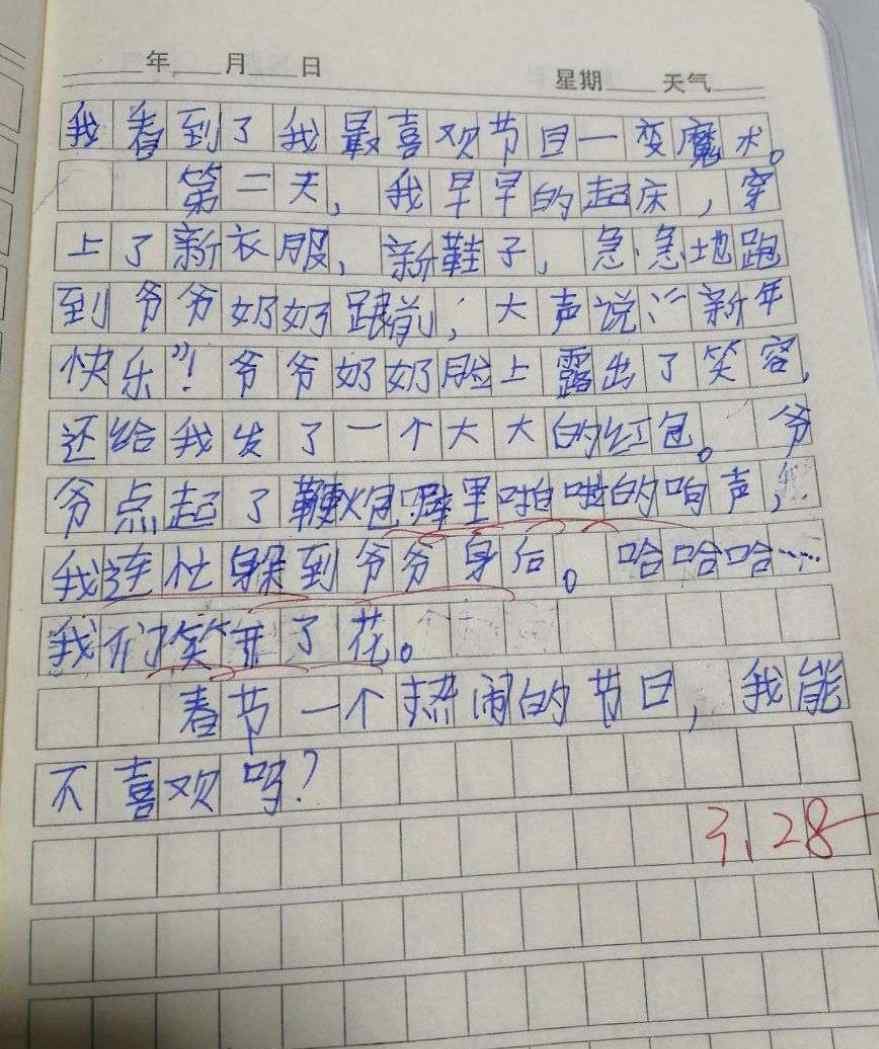 年 月 日
星期 天气
我看到了我最喜欢节目一变魔术。
第二天，我早早的起床，穿
上了新衣服，新鞋子，急急地跑
到爷爷奶奶跟前，大声说：“新年
快乐”！爷爷奶奶脸上露出了笑容，
还给我发了一个大大的红包。爷
爷点起了鞭炮噼里啪啦的响声，
我连忙躲到爷爷身后。哈哈哈……
我们笑开了花。
春节一个热闹的节日，我能
不喜欢吗？
3.28